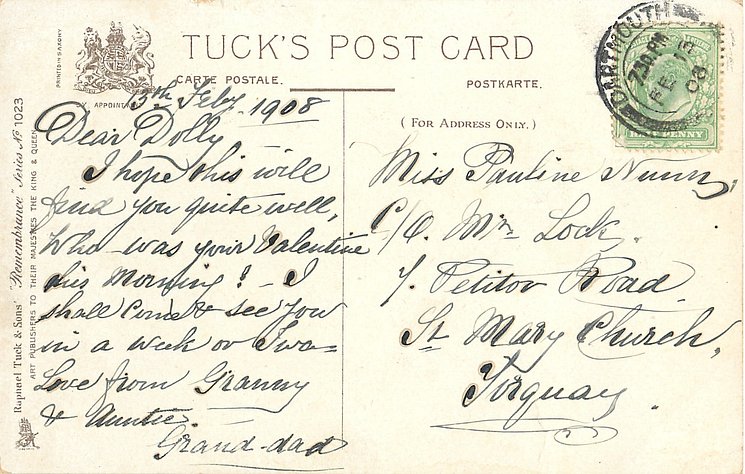 TUCK'S POST CARD
CARTE POSTALE.
POSTKARTE.
BY APPOINTMENT
(FOR ADDRESS ONLY.)
PRINTED IN SAXONY
Raphael Tuck & Sons' "Remembrance" Series No 1023
ART PUBLISHERS TO THEIR MAJESTIES THE KING & QUEEN
DARTMOUTH
7.30 PM
FE 13
08
HALF PENNY
Feby 1908
Dear Dolly
I hope this will
find you quite well,
Who was your Valentine
this Morning? - I
shall Come & see you
in a week or two -
Love from Granny
& Auntie.
Grand-dad
Miss Pauline Nunn,
C/O. Mrs Lock.
7. Petitor Road
St Mary Church,
Torquay.